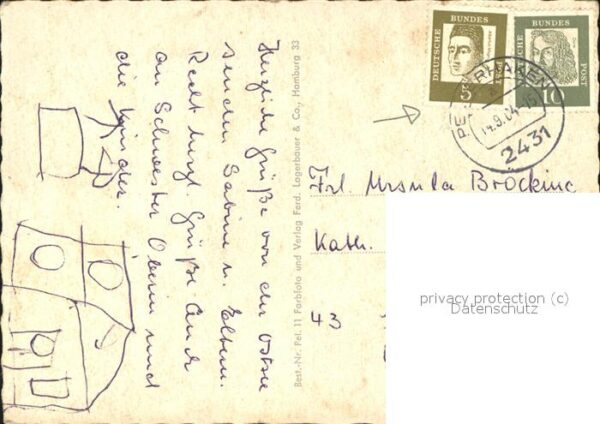 Herzliche Grüße von der Ostsee
senden Sabine u. Eltern.
Recht herzl. Grüße auch
an Schwester Oberin und
die Kinder.
Best.-Nr. Pel. 11 Farbfoto und Verlag Ferd. Lagerbauer & Co., Hamburg 33
DEUTSCHE BUNDESPOST
5
DEUTSCHE BUNDESPOST
10
14.9.64
2431
Frl. Ursula Brocking
Kath.
43
privacy protection (c)
Datenschutz